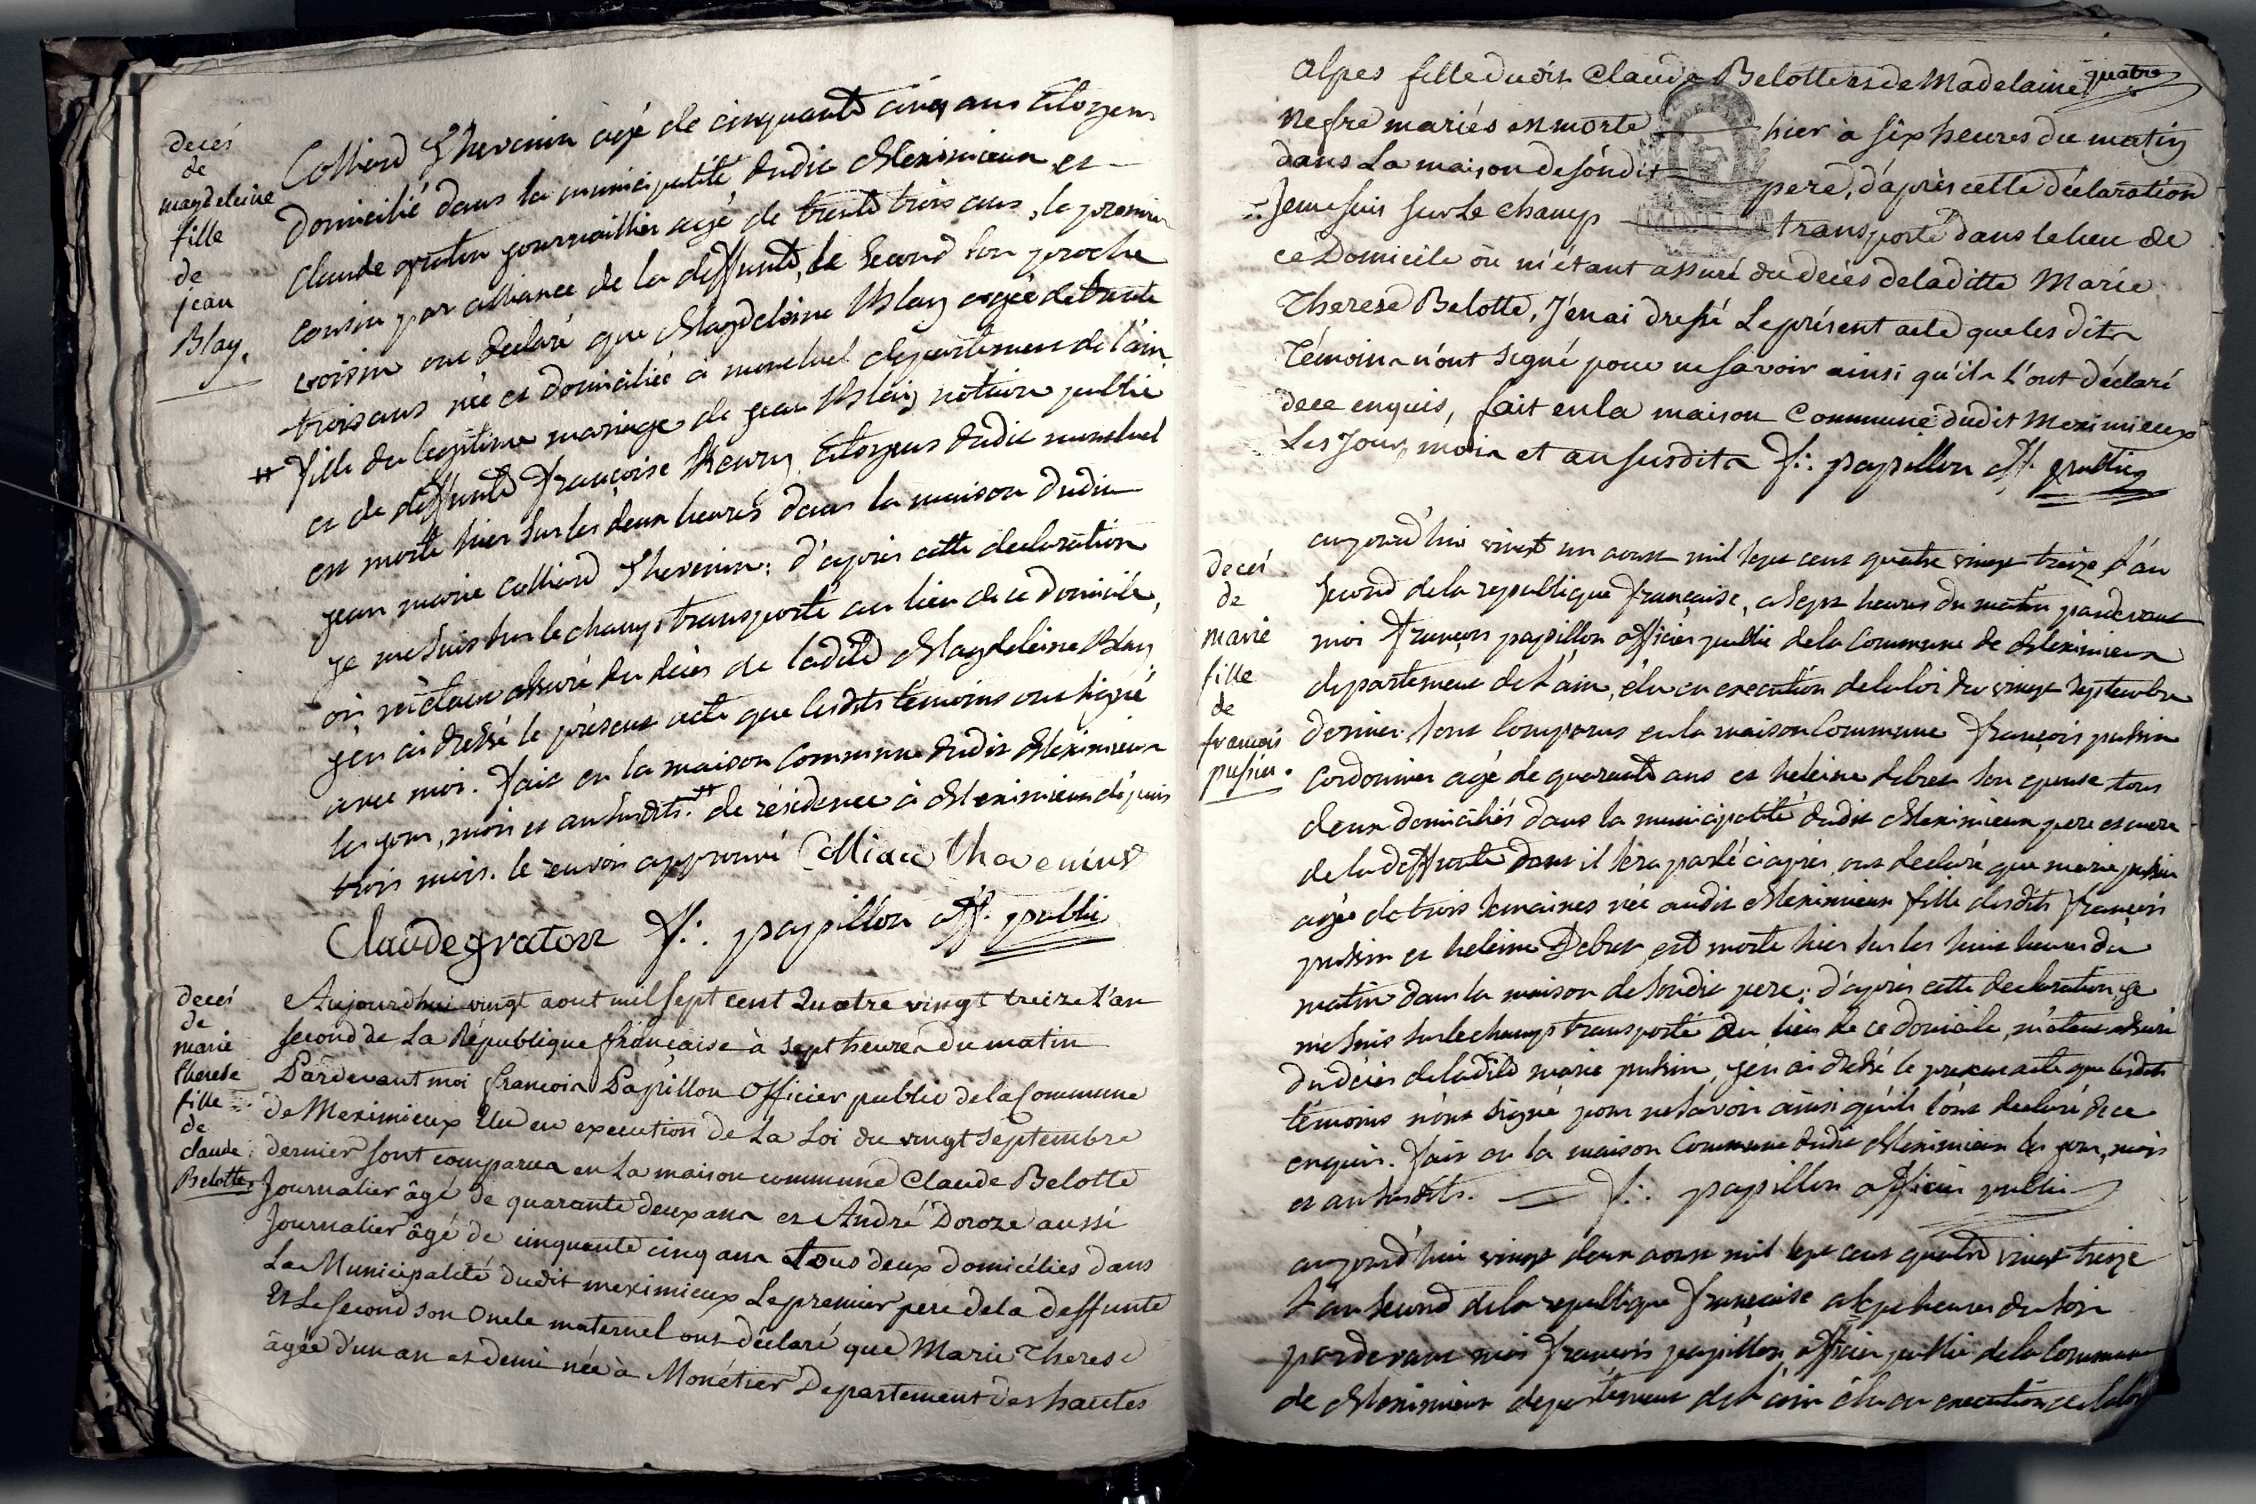 decés
de
magdeleine
fille
de
jean
Blay.
Colliard Thevenin agé de cinquante cinq ans Citoyens
domicilié dans la municipalité dudit Meximieux, et
Claude graton journaillier agé de trente trois ans, le premier
cousin par alliance de la deffunte, le second son proche
voisin ont declaré que Magdeleine Blay agée de trente
trois ans née et domiciliée à montluel departement de l'ain
# fille du legitime mariage de jean Blay notaire public
et de deffunte françoise Beury, Citoyens dudit montluel
est morte hier sur les deux heures dans la maison dudit
jean marie colliard Thevenin; d'après cette declaration
je me suis sur le champ transporté au lieu de ce domicile,
où m'étant assuré du décès de ladite Magdeleine Blay
j'en ai dressé le présent acte que lesdits témoins ont signé
avec moi. fait en la maison Commune dudit Meximieux
les jour, mois et an susdits. # de résidence à Meximieux depuis
trois mois. le renvoi approuvé Colliard thevenins
Claude graton f: papillon off. public
decés
de
marie
therese
fille
de
claude
Belotte
Aujourdhui vingt aout mil sept cent Quatre vingt treize l'an
second de La République française à sept heures du matin
Pardevant moi françois Papillon Officier public de la Commune
de Meximieux Elu en execution de La Loi du vingt septembre
dernier sont comparus en La maison commune Claude Belotte
Journalier âgé de quarante deux ans et André Doroze aussi
Journalier âgé de cinquante cinq ans tous deux domiciliés dans
La Municipalité dudit meximieux Le premier pere de la deffunte
Et Le second son Oncle maternel ont déclaré que Marie Therese
âgée d'un an et demi née à Monétier Departement des hautes
quatre
Alpes fille dudit Claude Belotte et de Madelaine
Nefre mariés est morte hier à six heures du matin
dans La maison de sondit pere, d'après cette déclaration
Je me suis sur Le champ transporté dans le lieu de
MINUT
ce Domicile où m'étant assuré du décès de laditte Marie
Therese Belotte, J'en ai dressé Le présent acte que les dits
Témoins n'ont signé pour ne savoir ainsi qu'ils L'ont déclaré
de ce enquis, fait en la maison Commune dudit Meximieux
Les Jour, mois et an susdits f: papillon off. public
decés
de
marie
fille
de
françois
pussin.
aujourd'hui vingt un aoust mil sept cent quatre vingt treize l'an
second de la republique française, a sept heures du matin pardevant
moi françois papillon officier public de la Commune de Meximieux
departement de l'ain, élu en execution de la loi du vingt septembre
dernier, sont comparus en la maison Commune françois pussin
Cordonnier agé de quarante ans et heleine debret son epouse tous
deux domiciliés dans la municipalité dudit Meximieux pere et mere
de la deffunte dont il sera parlé ci après, ont declaré que marie pussin
agée de trois semaines née audit Meximieux fille desdits françois
pussin et heleine Debret est morte hier sur les huit heures du
matin dans la maison de sondit pere; d'après cette declaration je
me suis sur le champ transporté au lieu de ce domicile, m'étant assuré
du décès de ladite marie pussin, j'en ai dressé le présent acte que lesdits
témoins n'ont signé pour ne savoir ainsi qu'ils l'ont declaré de ce
enquis. fait en la maison Commune dudit Meximieux les jour, mois
et an susdits. f: papillon officier public
aujourd'hui vingt deux aoust mil sept cent quatre vingt treize
l'an second de la republique française a sept heures du soir
pardevant moi françois papillon officier public de la Commune
de Meximieux departement de l'ain élu en execution de la loi